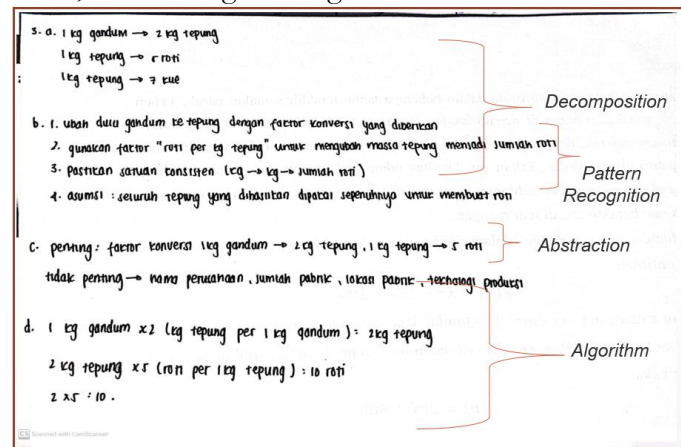 3. a. 1 kg gandum → 2 kg tepung
1 kg tepung → 5 roti
1 kg tepung → 7 kue
Decomposition
b. 1. ubah dulu gandum ke tepung dengan factor konversi yang diberikan
2. gunakan factor "roti per kg tepung" untuk mengubah massa tepung menjadi jumlah roti
3. pastikan satuan consisten (kg → kg → jumlah roti)
4. asumsi : seluruh tepung yang dihasilkan dipakai sepenuhnya untuk membuat roti
Pattern
Recognition
c. penting : factor konversi 1kg gandum → 2kg tepung, 1 kg tepung → 5 roti
tidak penting → nama perusahaan, jumlah pabrik, lokasi pabrik, teknologi produksi
Abstraction
d. 1 kg gandum x2 (kg tepung per 1 kg gandum) = 2kg tepung
2 kg tepung x5 (roti per 1kg tepung) : 10 roti
2 x5 : 10.
Algorithm
CS Scanned with CamScanner